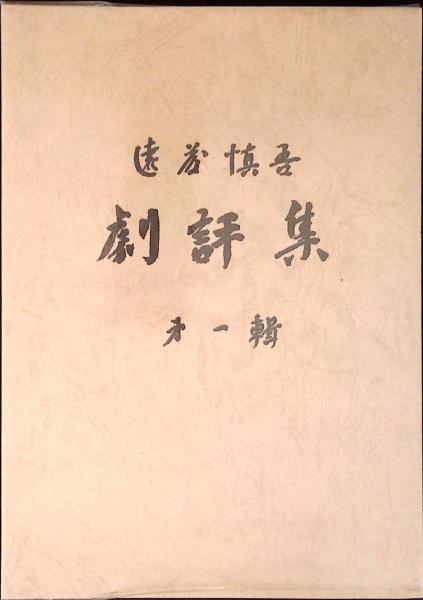 遠藤慎吾
劇評集
第一輯